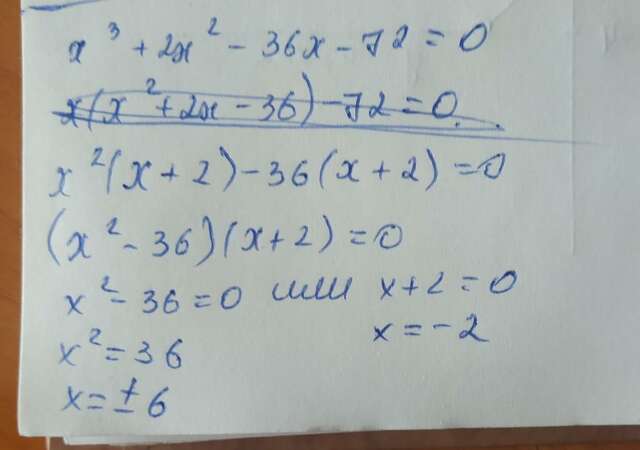 x³ + 2x² - 36x - 72 = 0
x(x² + 2x - 36) - 72 = 0
x²(x + 2) - 36(x + 2) = 0
(x² - 36)(x + 2) = 0
x² - 36 = 0 или x + 2 = 0
x² = 36 x = -2
x = ± 6